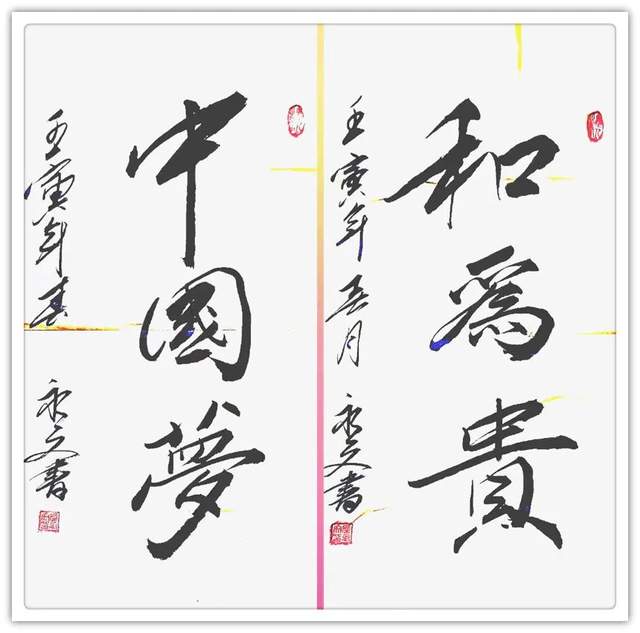 和為貴
壬寅年五月
永文書
中國夢
壬寅年春
永文書